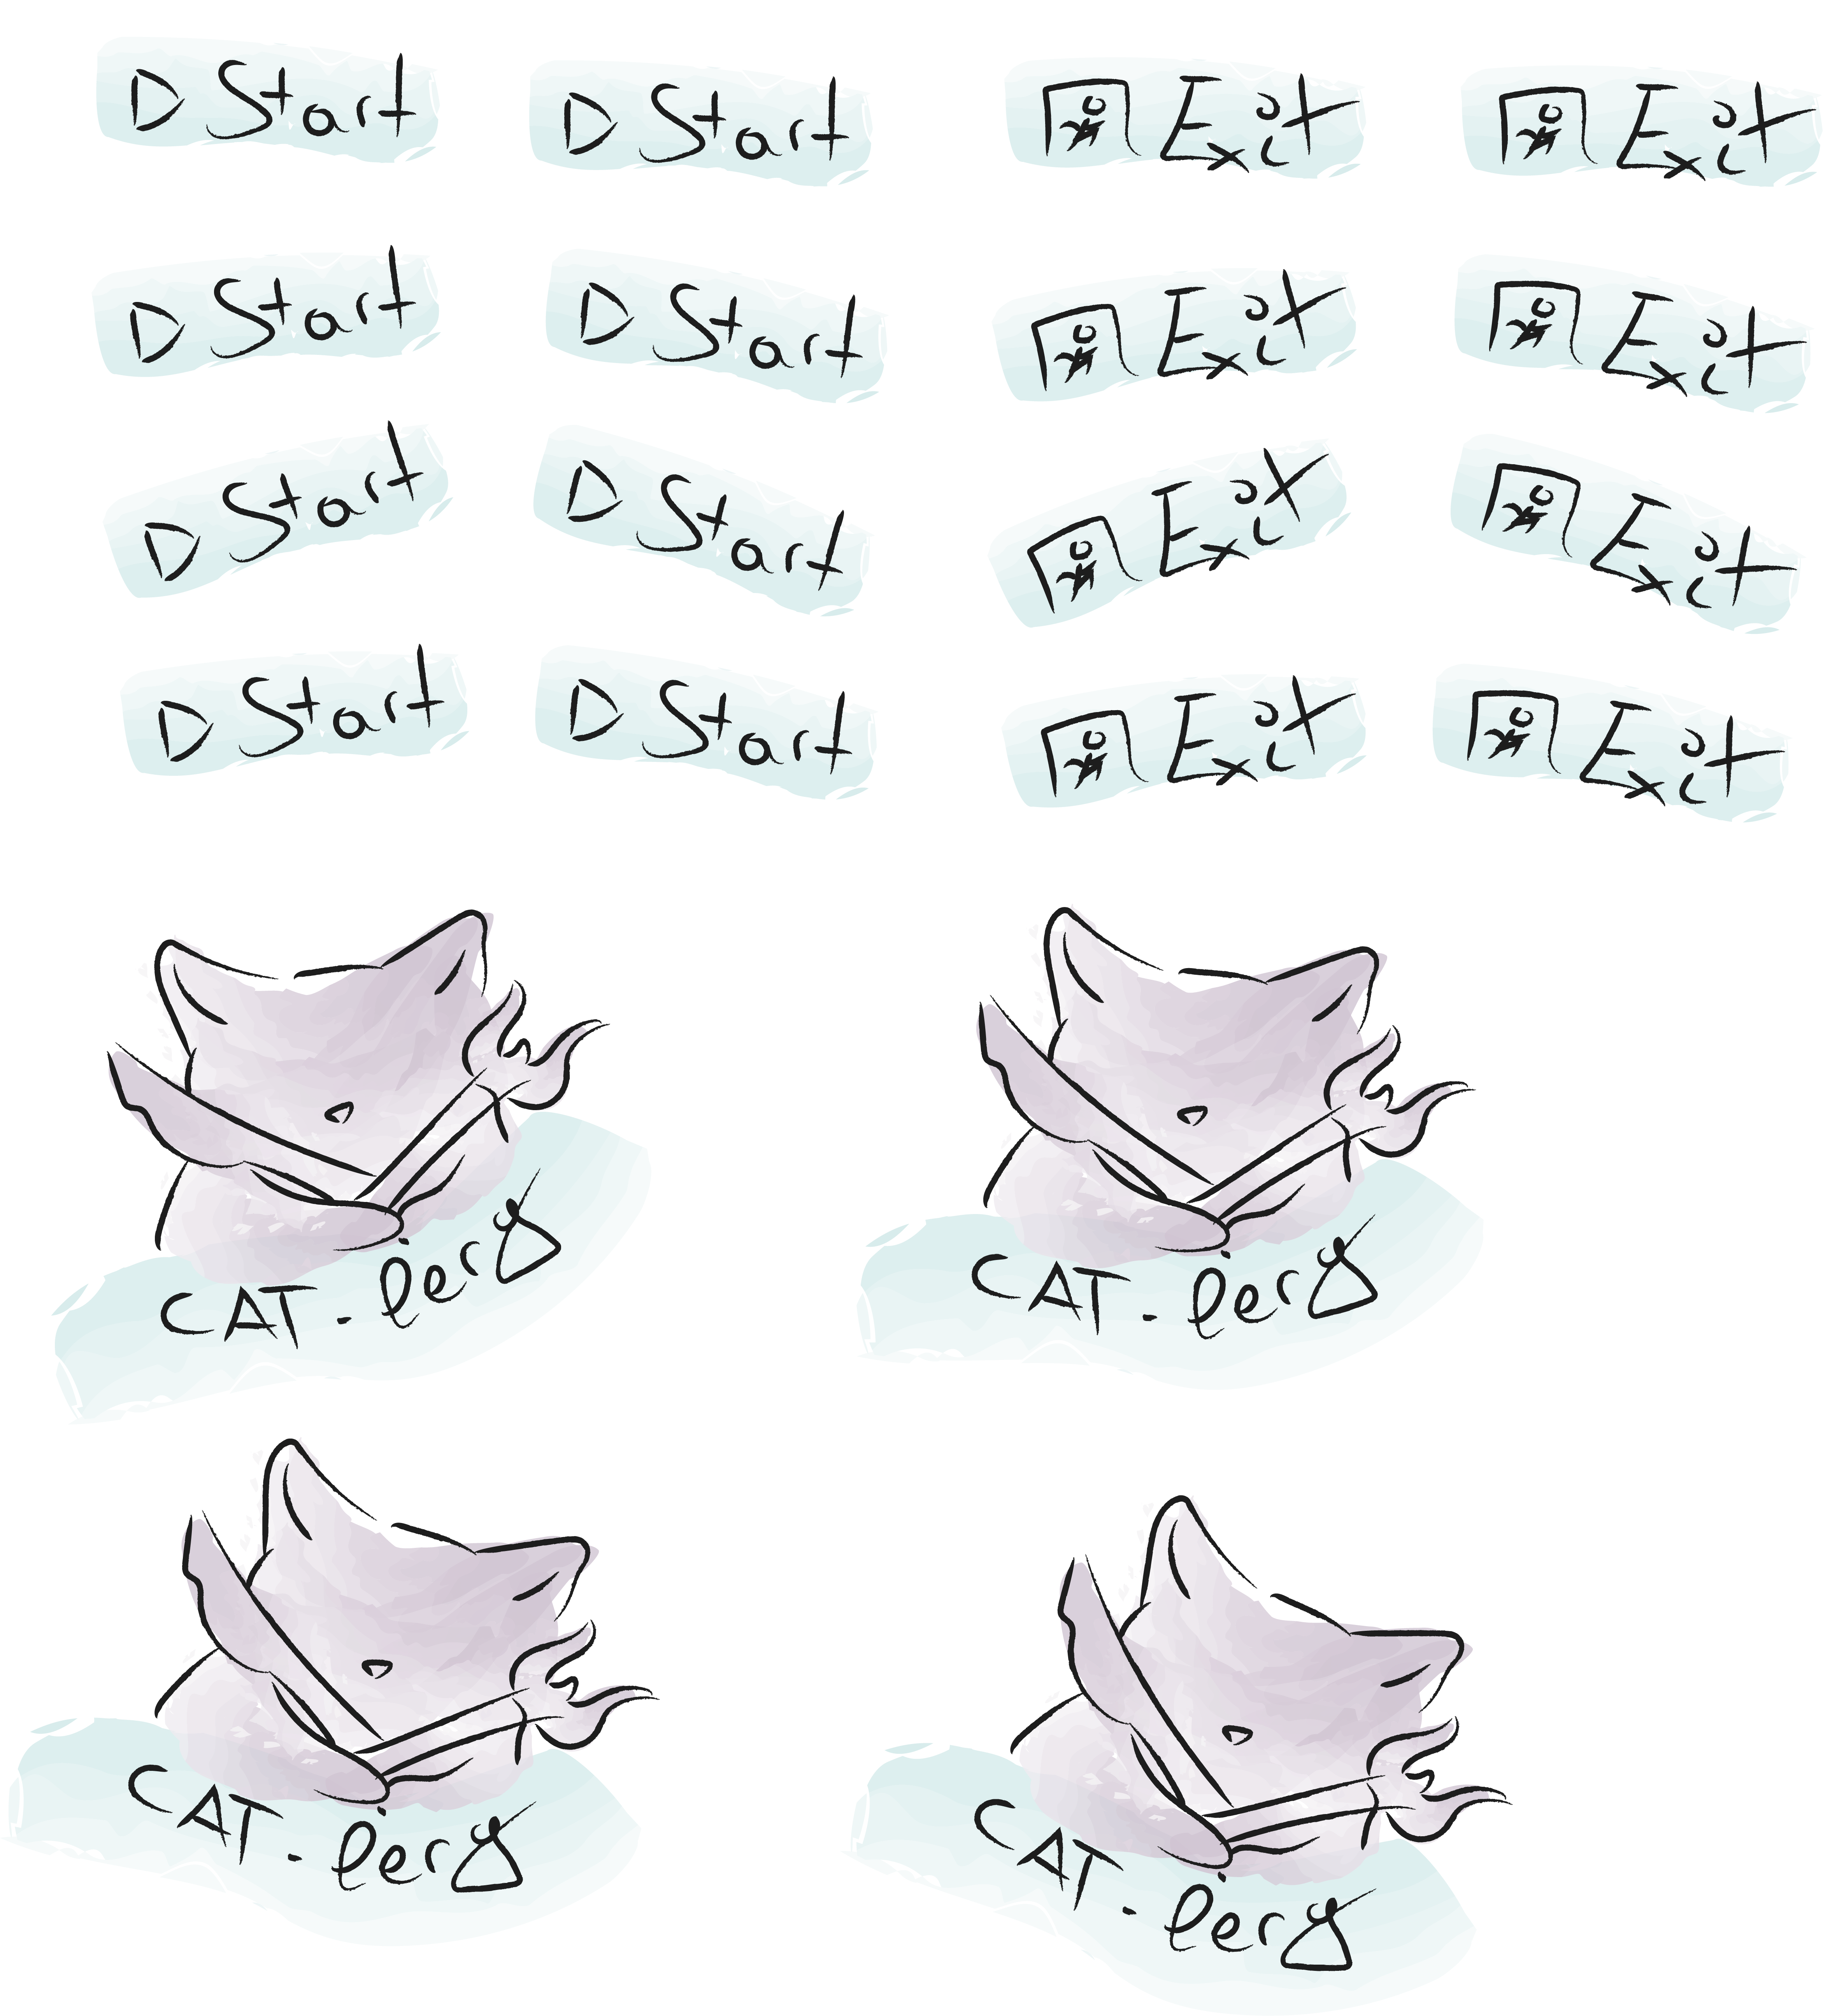 Start Start Exit Exit
Start Start Exit Exit
Start Start Exit Exit
Start Start Exit Exit
CAT-lery CAT-lery
CAT-lery CAT-lery